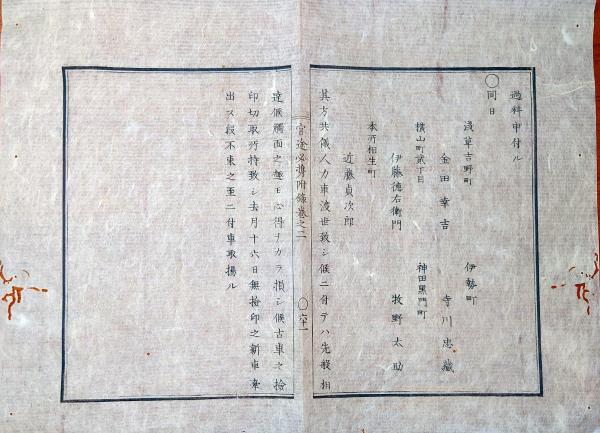 過料申付ル
〇同日
浅草吉野町
金田幸吉
伊勢町
寺川忠蔵
横山町貳丁目
伊藤徳右衛門
神田黒門町
牧野太助
本所相生町
近藤貞次郎
其方共儀人力車渡世致シ候ニ付テハ先般相
官途必携附録巻之二
〇六十一
達候觸面之趣モ心得ナカラ損シ候古車之拾
印切取所持致シ去月十六日無拾印之新車牽
出ス段不束之至ニ付車取揚ル